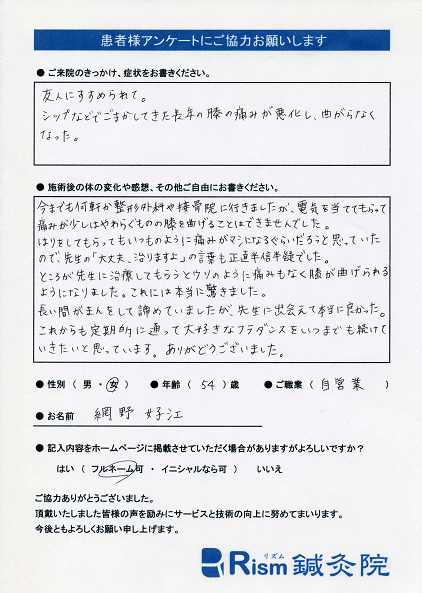 患者様アンケートにご協力お願いします
● ご来院のきっかけ、症状をお書きください。
友人にすすめられて。
シップなどでごまかしてきた長年の膝の痛みが悪化し、曲がらなく
なった。
● 施術後の体の変化や感想、その他ご自由にお書きください。
今までも何軒か整形外科や接骨院に行きましたが、電気を当ててもらって
痛みが少しはやわらぐものの膝を曲げることはできませんでした。
はりをしてもらってもいつものように痛みがマシになるぐらいだろうと思っていた
ので先生の「大丈夫、治りますよ」の言葉も正直半信半疑でした。
ところが先生に治療してもらうとウソのように痛みもなく膝が曲げられる
ようになりました。これには本当に驚きました。
長い間がまんをして諦めていましたが、先生に出会えて本当に良かった。
これからも定期的に通って大好きなフラダンスをいつまでも続けて
いきたいと思っています。ありがとうございました。
● 性別 ( 男 ・ 女 ) ● 年齢 ( 54 ) 歳 ● ご職業 ( 自営業 )
● お名前 網野 好江
● 記入内容をホームページに掲載させていただく場合がありますがよろしいですか?
はい ( フルネーム可 ・ イニシャルなら可 ) いいえ
ご協力ありがとうございました。
頂戴いたしました皆様の声を励みにサービスと技術の向上に努めてまいります。
今後ともよろしくお願い申し上げます。
リズム
Rism鍼灸院